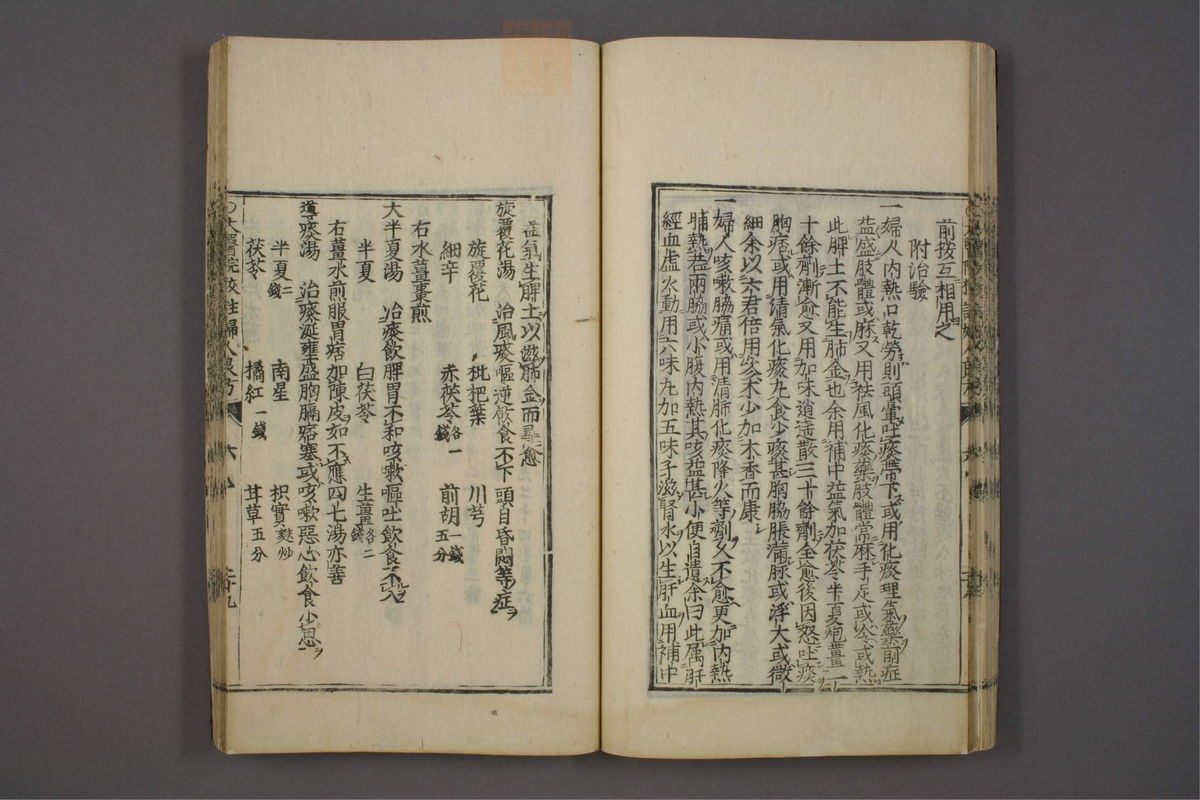 前按互相用之
附治驗
一婦人内熱口乾勞則頭暈吐痰帶下或用化痰理氣藥前症
益盛肢體或麻又用祛風化痰藥肢體常麻手足或冷或熱
此脾土不能生肺金也余用補中益氣加茯苓半夏炮薑二
十餘劑漸愈又用加味逍遥散三十餘劑全愈後因怒吐痰
胸痞或用清氣化痰丸食少痰甚胸膈脹滿脉或浮大或微
細余以六君倍用參朮少加木香而康
一婦人咳嗽脇痛或用清肺化痰降火等劑久不愈更加内熱
晡熱若兩脇或小腹内熱其咳益甚小便自遺余曰此属肝
經血虚火動用六味丸加五味子滋腎水以生肝血用補中
益氣生脾土以滋肺金而尋愈
旋覆花湯 治風痰嘔逆飲食不下頭目昏悶等症
旋覆花 枇杷葉 川芎
細辛 赤茯苓各一錢 前胡一錢五分
右水薑棗煎
大半夏湯 治痰飲脾胃不和咳嗽嘔吐飲食不入
半夏 白茯苓 生薑各二錢
右薑水煎服胃痞加陳皮如不應四七湯亦善
導痰湯 治痰涎壅盛胸膈痞塞或咳嗽惡心飲食少思
半夏二錢 南星 枳實麩炒
茯苓 橘紅一錢 甘草五分
太醫院校註婦人良方